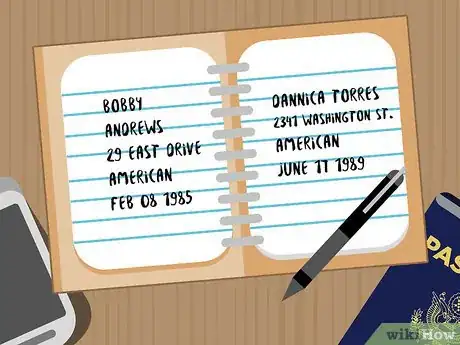 BOBBY
ANDREWS
29 EAST DRIVE
AMERICAN
FEB 08 1985
DANNICA TORRES
2341 WASHINGTON ST.
AMERICAN
JUNE 17 1989
PAS
wikiHow